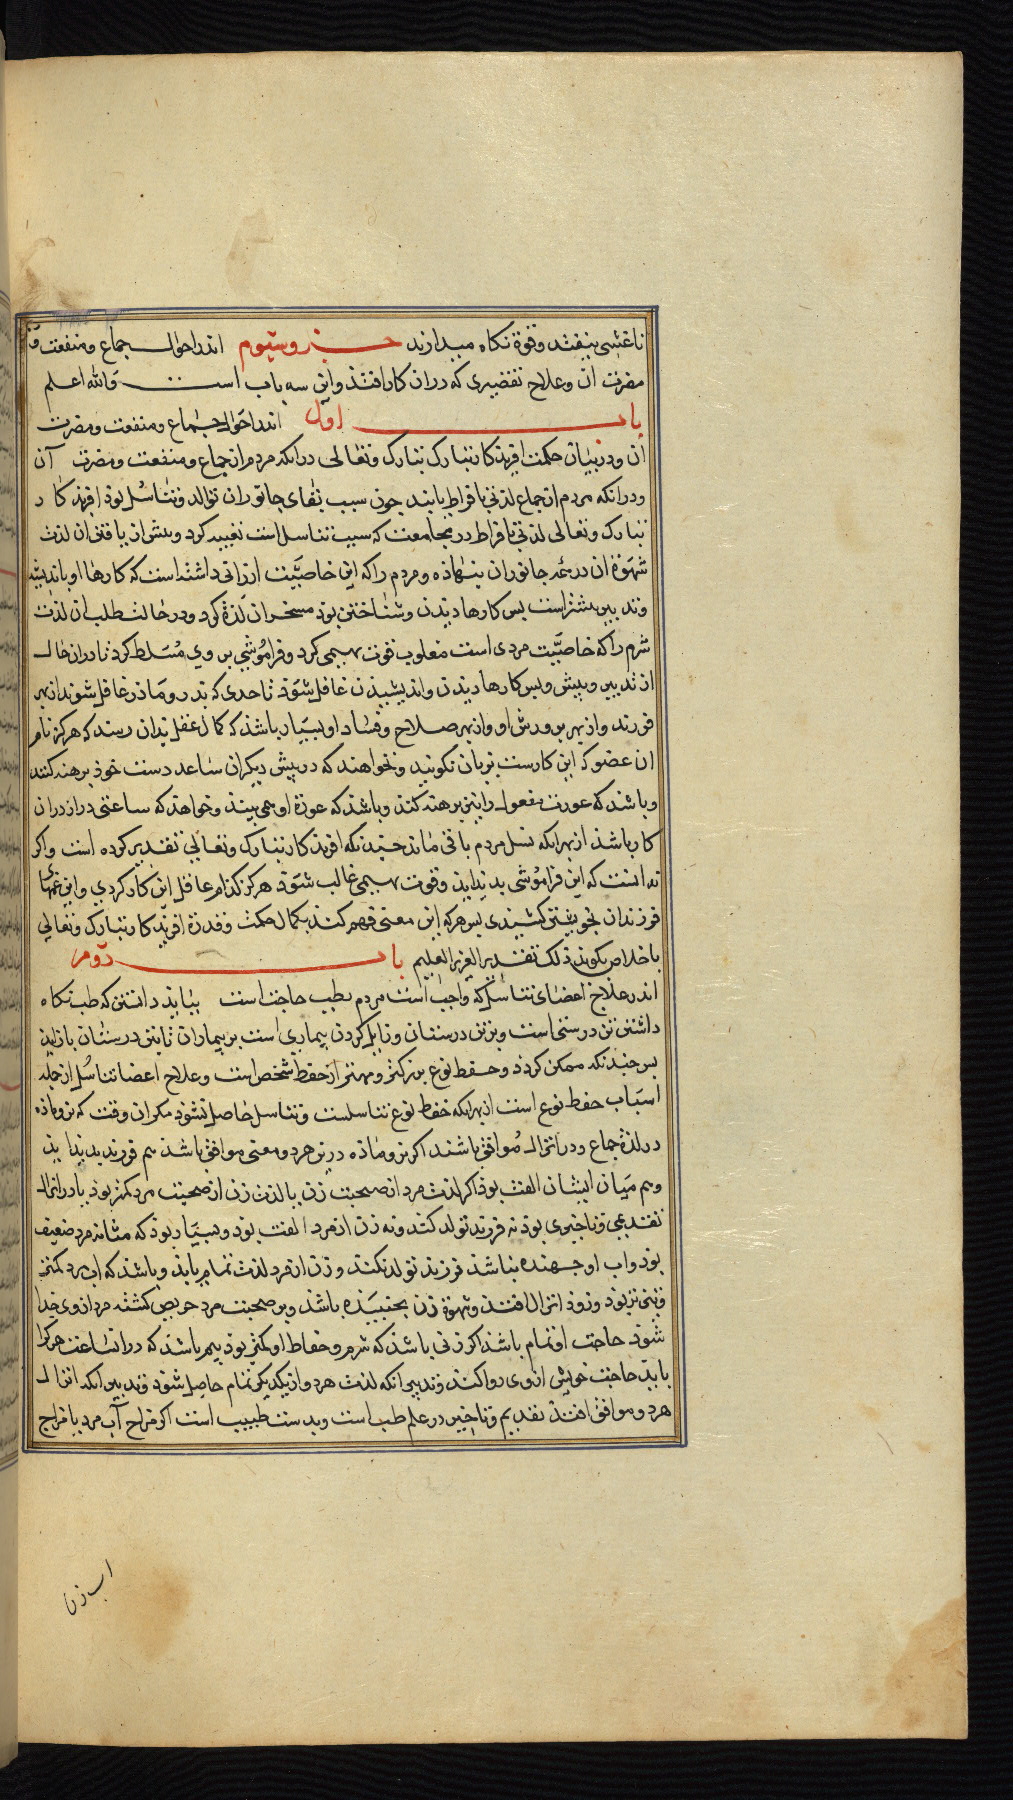 تا غشی نیفتد و قوة نکاه میدارند جزو سیوم اندر احوال جماع و منفعت و
مضرت آن و علاج تقصیری که در ان کار افتذ و این سه باب است والله اعلم
باب اول اندر احوال جماع و منفعت و مضرت
ان و در بیان حکمت افریذکار تبارک تبارک و تعالی در انکه مردم از جماع و منفعت و مضرت آن
و در انکه مردم از جماع لذتی بافراط یابند جون سبب بقای جانوران توالد و تناسل بوذ افریذ کا ر
تبارک و تعالی لذتی بافراط در مجامعت که سبب تناسل است تعبیه کرد و بیش از یافتن ان لذت
شهوة ان در همه جانوران بنهاذه و مردم را که این خاصیت ارزانی داشته است که کارها او باندیشه
و تدبیر بیشتر است بس کارها دیدن و شناختن بوذ مسخر ان لذة کرد و در حالت طلب ان لذت
شرم را که خاصیت مردی است مغلوب قوت بهیمی کرد و فراموشی بر وی مسلط کرد تا در ان حال
از تدبیر و بیش و بس کارها دیدن و اندیشیدن غافل شوذ تا حدی که بدر و ماذر غافل شوند از بهر
فرزند و از بهر برورش او و از بهر صلاح و فساد او بسیار باشذ که کمال عقل بدان رسد که هرکز نام
ان عضو که این کار ست بزبان نکویند و نخواهند که در بیش دیکران ساعد دست خوذ برهنه کنند
و باشذ که عورت مفعول را نیز برهنه کنند و باشذ که عورة او همی بیند و خواهذ که ساعتی دراز در ان
کار باشذ از بهر انکه نسل مردم باقی ماند جندانکه افریذ کار تبارک و تعالی تقدیر کرده است و اکر
نه انست که این فراموشی بدید ایذ و قوت بهیمی غالب شوذ هرکز کذام عاقل این کار کردی و این غمهای
فرزندان بخویشتن کشیدی بس هر که این معنی فهم کند بکمال حکمت و قدرة افریذکار تبارک و تعالی
باخلاص بکویذ ذلک تقدیر العزیز العلیم باب دوم
اندر علاج اعضای تناسل که واجب است مردم بطب حاجت است بباید دانستن که طب نکاه
داشتن تن درستی است و بر تن درستان و زایل کردن بیماری است بر بیماران تا بتن درستان باز ایذ
بس جندانکه ممکن کردد و حفظ نوع بزرکتر و مهمتر از حفظ شخص است و علاج اعضا تناسل از جمله
اسباب حفظ نوع است از بهر انکه حفظ نوع بتناسلست و تناسل حاصل نشوذ مکر ان وقت که نر و ماذه
در لذة جماع و در انزال موافق باشند اکر نر و ماذه درین هر دو معنی موافق باشذ هم فرزند بدید ایذ
و هم میان ایشان الفت بوذ اکر لذت مرد از صحبت زن یا لذت زن از صحبت مرد کمتر بوذ یا در انزال
تقدیمی و تاخیری بوذ نه فرزند تولد کند و نه زن از مرد الفت بوذ و بسیار بوذ که مثانه مرد ضعیف
بوذ و اب او جهنده نباشذ فرزند تولد نکند و زن از مرد لذت تمام یابذ و باشذ که اب مرد کمتر
و تنی تر بوذ و زوذ انزال افتذ و شهوة زن بجنبیذه باشذ و بر صحبت مرد حریص کشته مرد از وی جدا
شوذ حاجت او تمام باشذ اکر زنی باشذ که شرم و حفاظ او کمتر بوذ بیم باشذ که در ان ساعت هر کرا
یابد حاجت خویش از وی روا کند و تدبیر انکه لذت هر دو از یکدیکر تمام حاصل شوذ و تدبیر انکه انزال
هر دو موافق افتذ تقدیم و تاخیر در علم طب است و بدست طبیب است اکر مزاج آب مرد با مزاج
اب زن